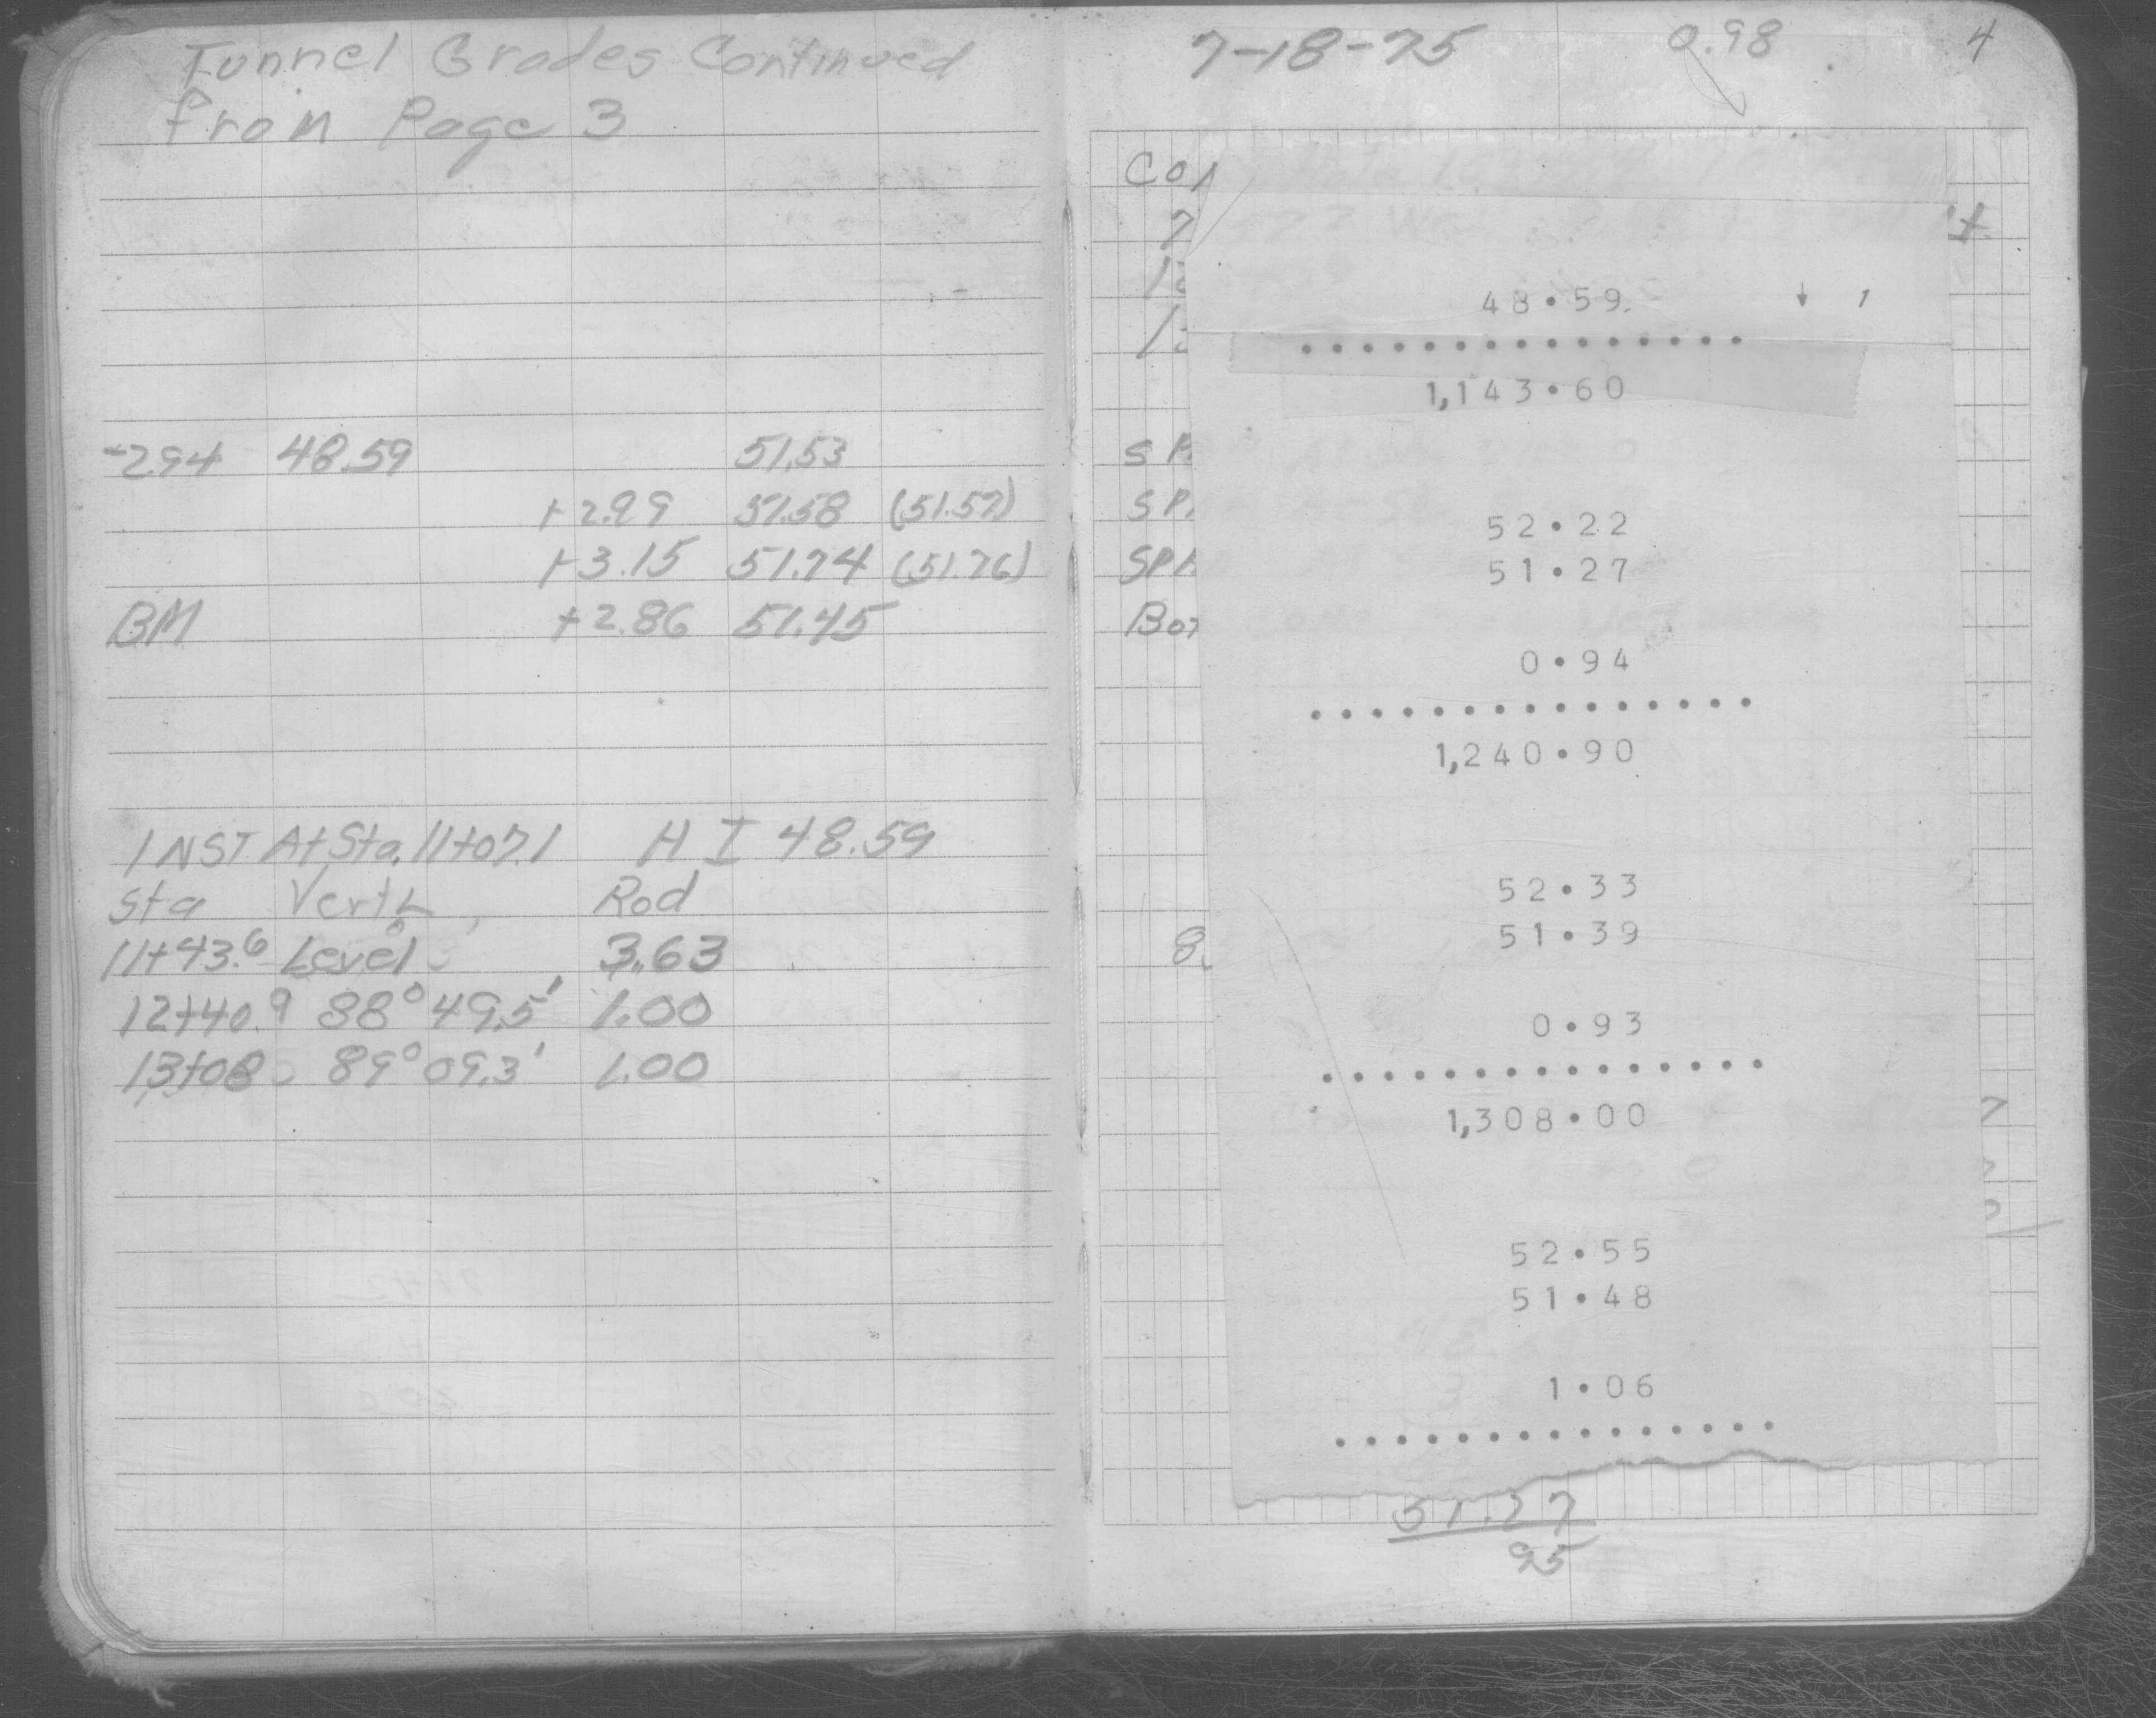 Tunnel Grades Continued
from Page 3
-2.94 48.59 51.53
+2.99 51.58 (51.57)
+3.15 51.74 (51.76)
BM +2.86 51.45
INST At Sta. 11+07.1 H I 48.59
Sta Vert ∠ Rod
11+43.6 Level 3.63
12+40.9 88° 49.5' 1.00
13+08 89° 09.3' 1.00
7-18-75 0.98 4
48.59
1,143.60
52.22
51.27
0.94
1,240.90
52.33
51.39
0.93
1,308.00
52.55
51.48
1.06
51.27
95